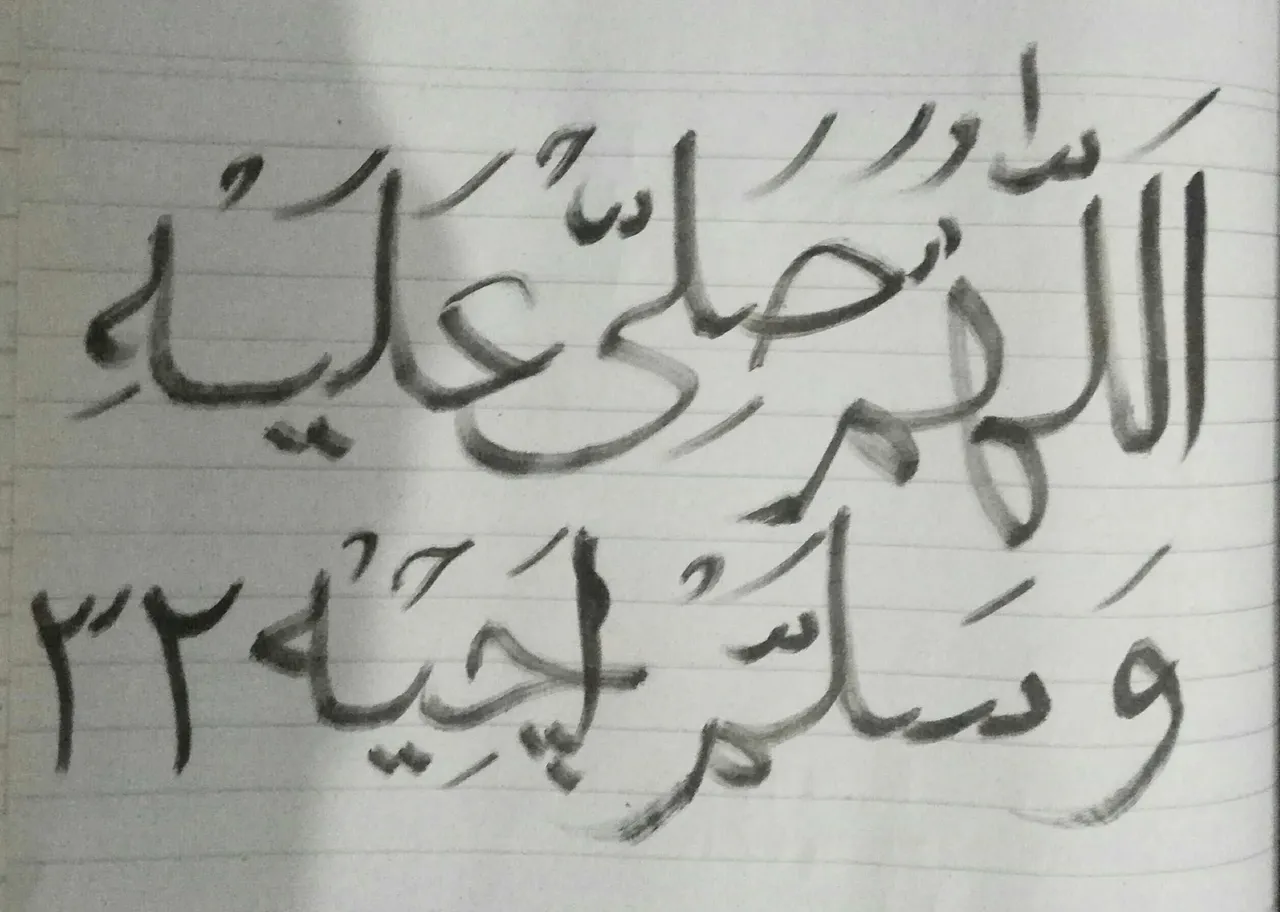 اَللّٰهُمَّ صَلِّىْ عَلَيْهِ
وَ سَلَّمْ اَچِيْه ٣٢